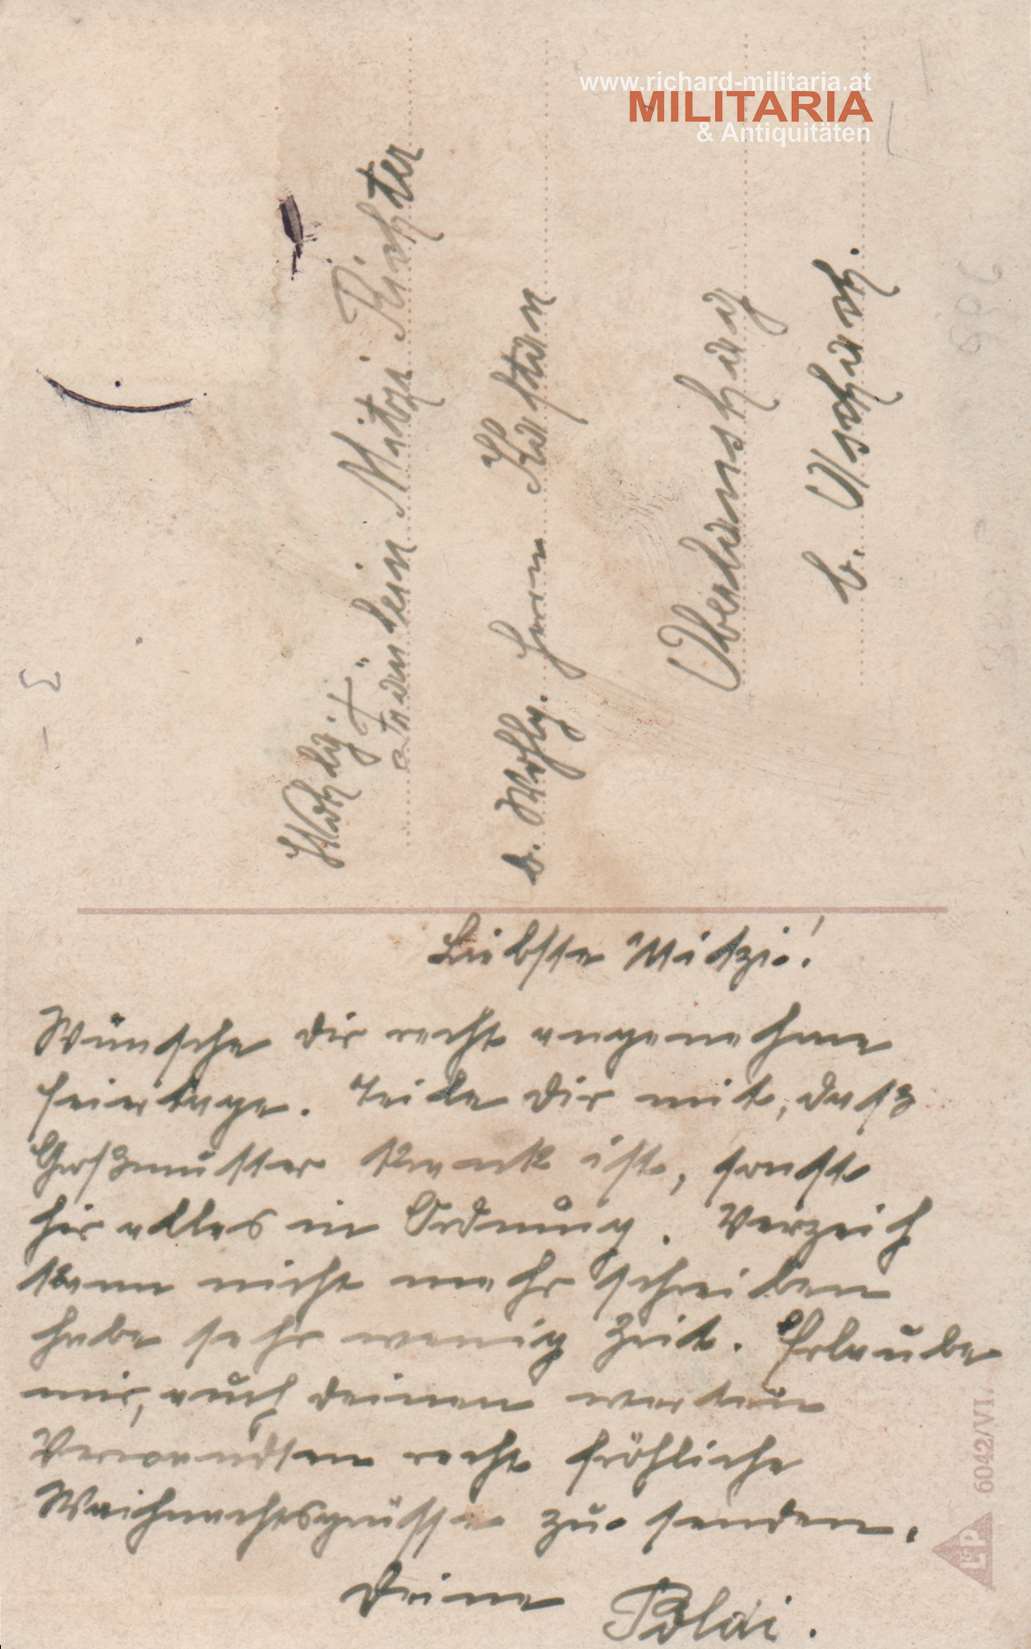 www.richard-militaria.at
MILITARIA
& Antiquitäten
Fräulein Mitzi Richter
b. Wohlg. Herrn
b.
Liebste Mitzi!
Wünsche dir recht angenehme
feiertage. Teile dir mit, daß
Großmutter krank ist, sonst
hir alles in Ordnung. Verzeih
kann nicht mehr schreiben
habe sehr wenig Zeit. Erlaube
mir, auch deinen werten
Verwandten recht fröhliche
Weihnachtsgrüsse zu senden.
Deine Poldi.
6042/VI.
L&P